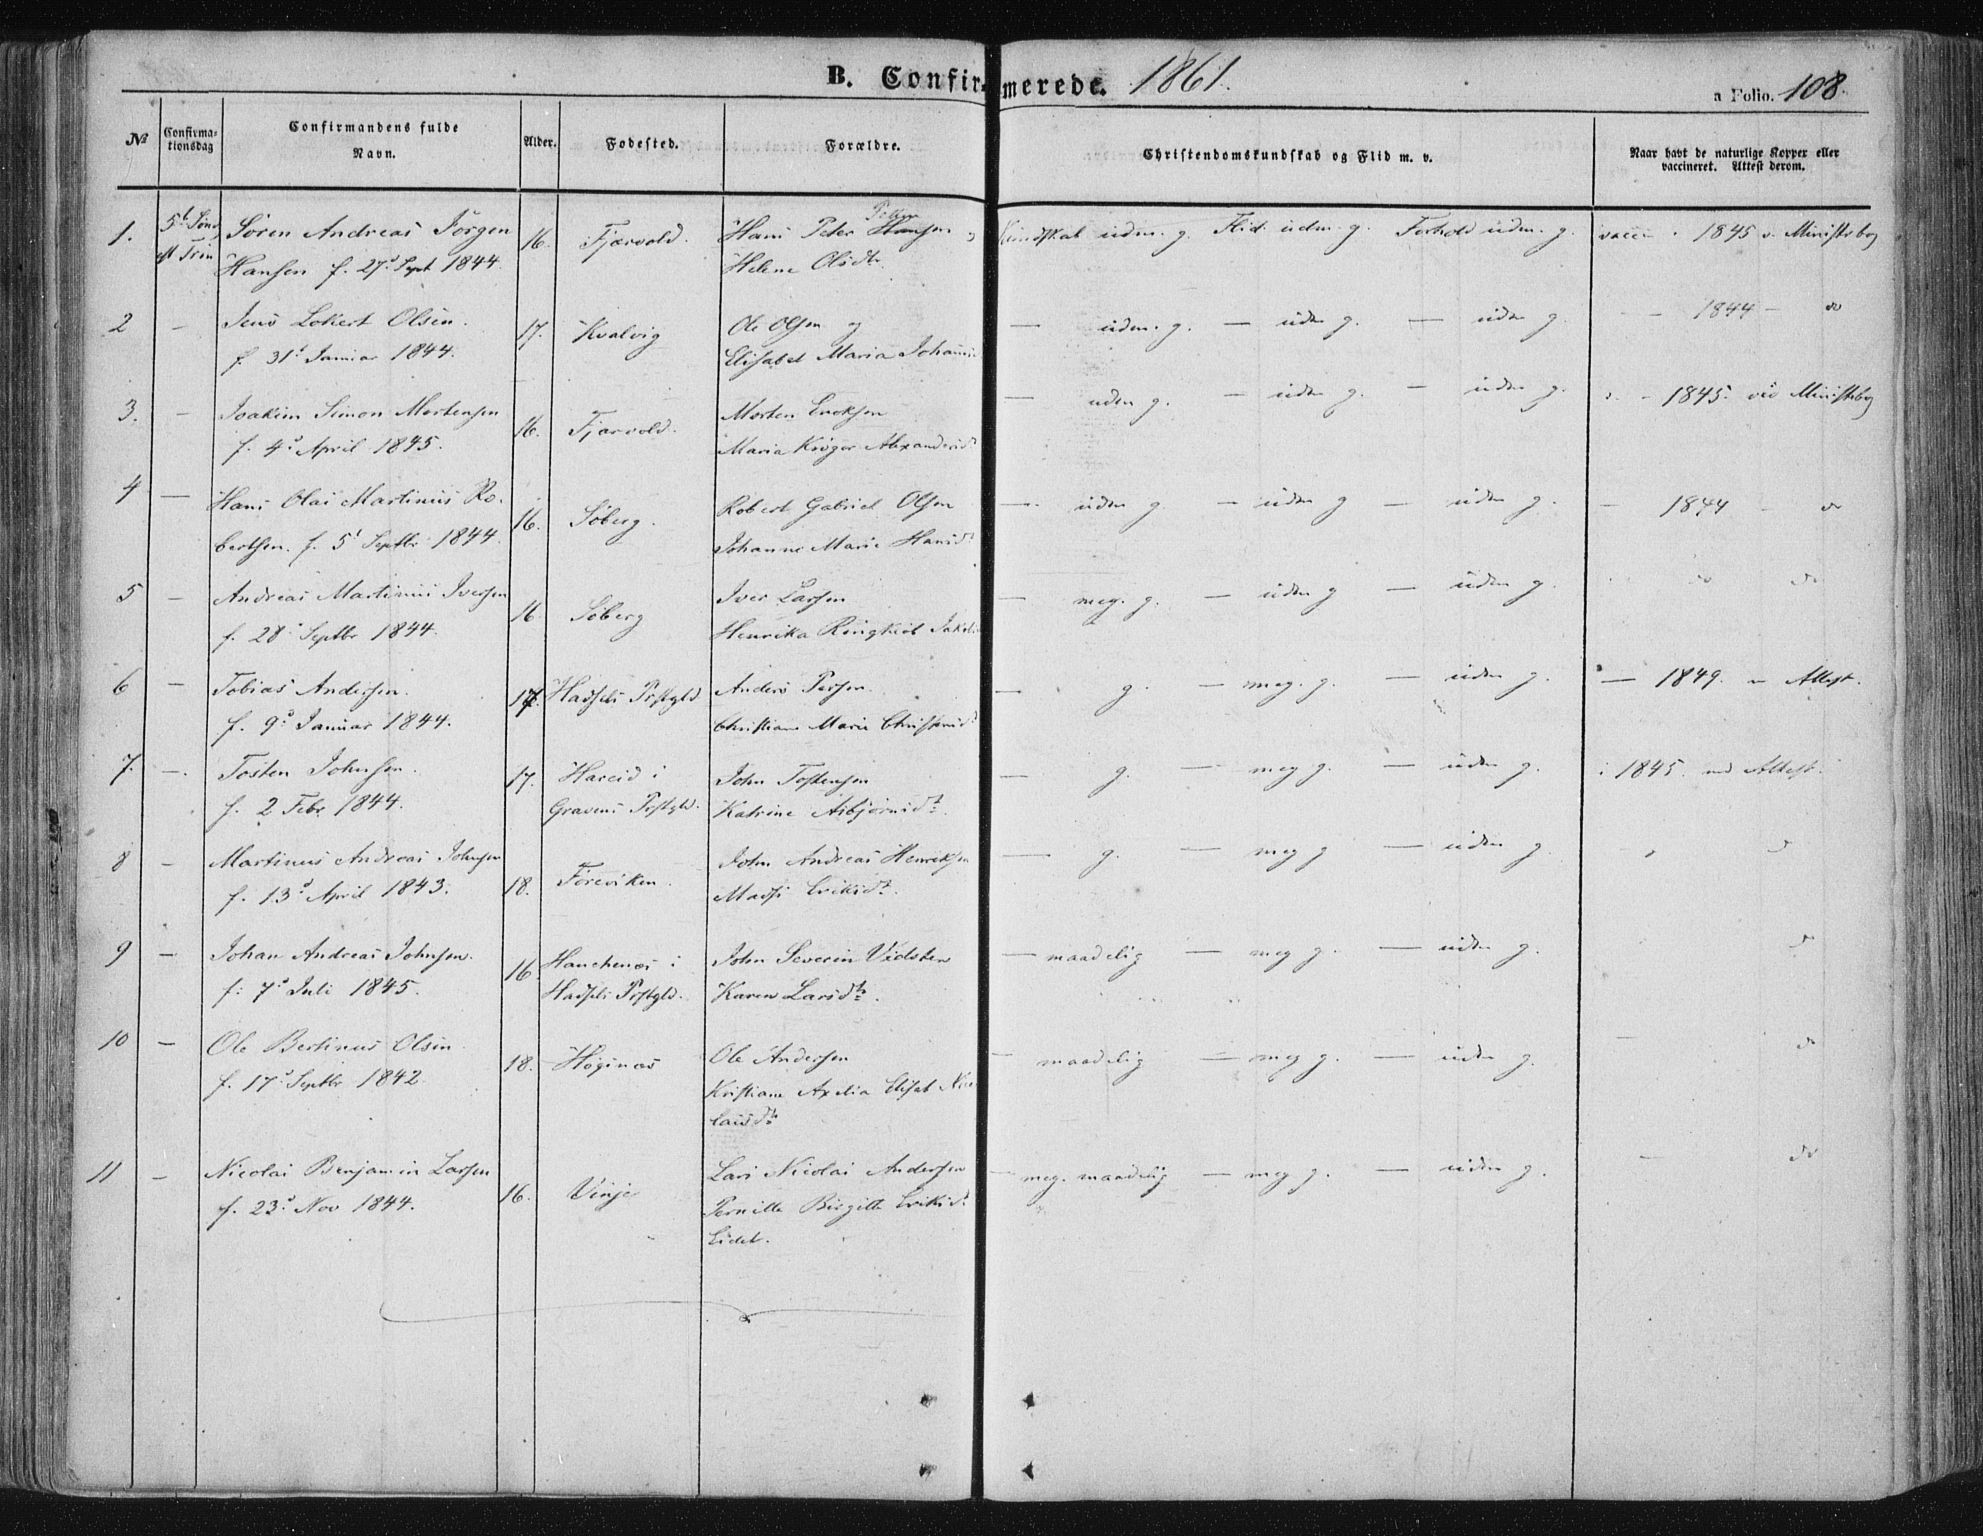 B. Confirmerede. 1861.
a Folio. 108.
№
Confirma-
tionsdag
Confirmandens fulde
Navn.
Alder.
Fødested.
Forældre.
Christendomskundskab og Flid m. v.
Naar havt de naturlige Kopper eller
vaccineret. Attest derom.
1. 5t Sønd Søren Andreas Jørgen 16. Fjærvold. Hans Peter Hansen Kundskab uden. g. Flid uden. g. Forhold uden. g. vacc 1845 v. Ministbog
eft Trin Hansen f. 27d Sept 1844. Helene Olsdtr
2 — Jens Lokert Olsen. 17. Kvalvig Ole Olsen og — uden. g. — uden g. — uden g. — 1844 — do
f. 31t Januar 1844. Elisabet Maria
3. — Joakim Simon Mortensen 16. Fjærvold. Morten Ericksen — uden g. — uden g. — uden g. — 1845. Ministbog
f. 4d April 1845. Maria Krøger Alexandersdt
4 — Hans Olai Martinus Ro- 16. Søberg. Robert Gabriel Olsen — uden g — uden g — uden g. — 1844 — do
bertsen. f. 5t Septbr 1844. Johanne Marie Hansdt
5 — Andreas Martinus Iversen 16 Søberg Iver Larsen — meg. g. — uden g — uden g. do do
f. 28d Septbr 1844. Henrika
6 — Tobias Andersen. 17 Hadsels Prstgld Anders Persen. — g. — meg. g. — uden g. — 1849. Attest.
f. 9d Januar 1844. Christiane Marie
7. — Tosten Johnsen. 17. Hareid i John Tostensen — g. — meg g. — uden g. i 1845. Attest.
f. 2 Febr 1844. Gravens Prstgld. Katrine Asbjørnsdt.
8 — Martinus Andreas Johnsen 18. Foreviken. John Andreas Henriksen — g. — meg g — uden g.
f. 13d April 1843. Eriksdt.
9 — Johan Andreas Johnsen. 16. i John Severin Vidsten — maadelig — meg g. — uden g.
f. 7d Juli 1845. Hadsels Prstgld. Karen Larsdtr.
10 — Ole Bertinus Olsen 18. Høginæs Ole Andersen — maadelig — meg g. — uden g. — do
f. 17d Septbr 1842. Kristiane Axelia Elisab Nico
laisdtr
11 — Nicolai Benjamin Larsen 16. Vinje Lars Nicolai Andersen — meg. maadelig — meg g. — uden g. — do
f. 23d Nov 1844. Pernille Birgitte Eriksdt
Eidet.